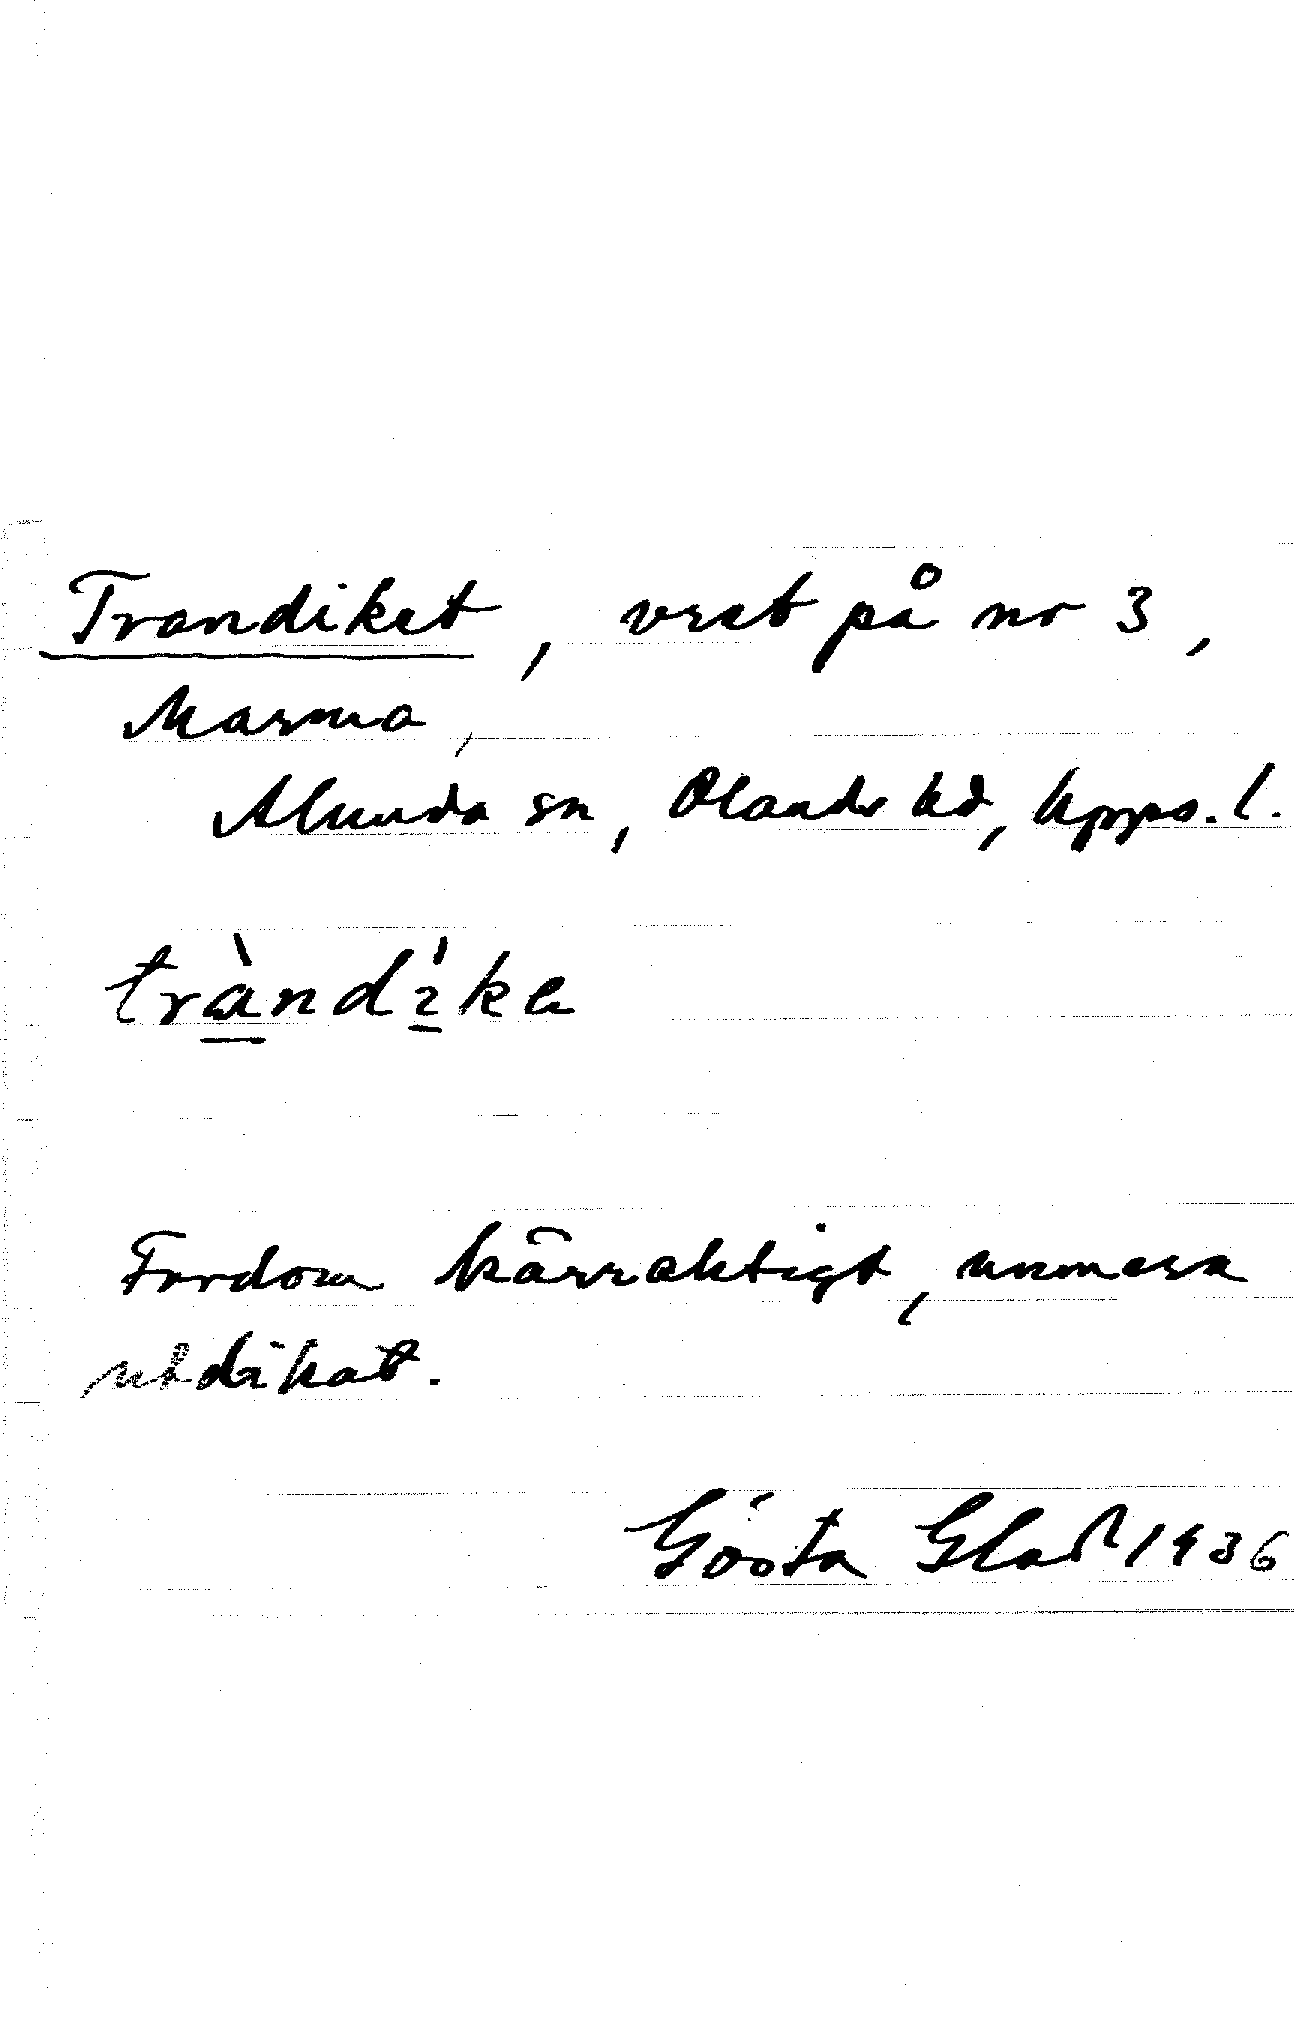 Trandiket, vret på nr 3,
Marma,
Alunda sn, Olands hd, Upps. l.
tràndi̍ka
Fordom kärraktigt, numera
utdikat.
Gösta Glad 1936